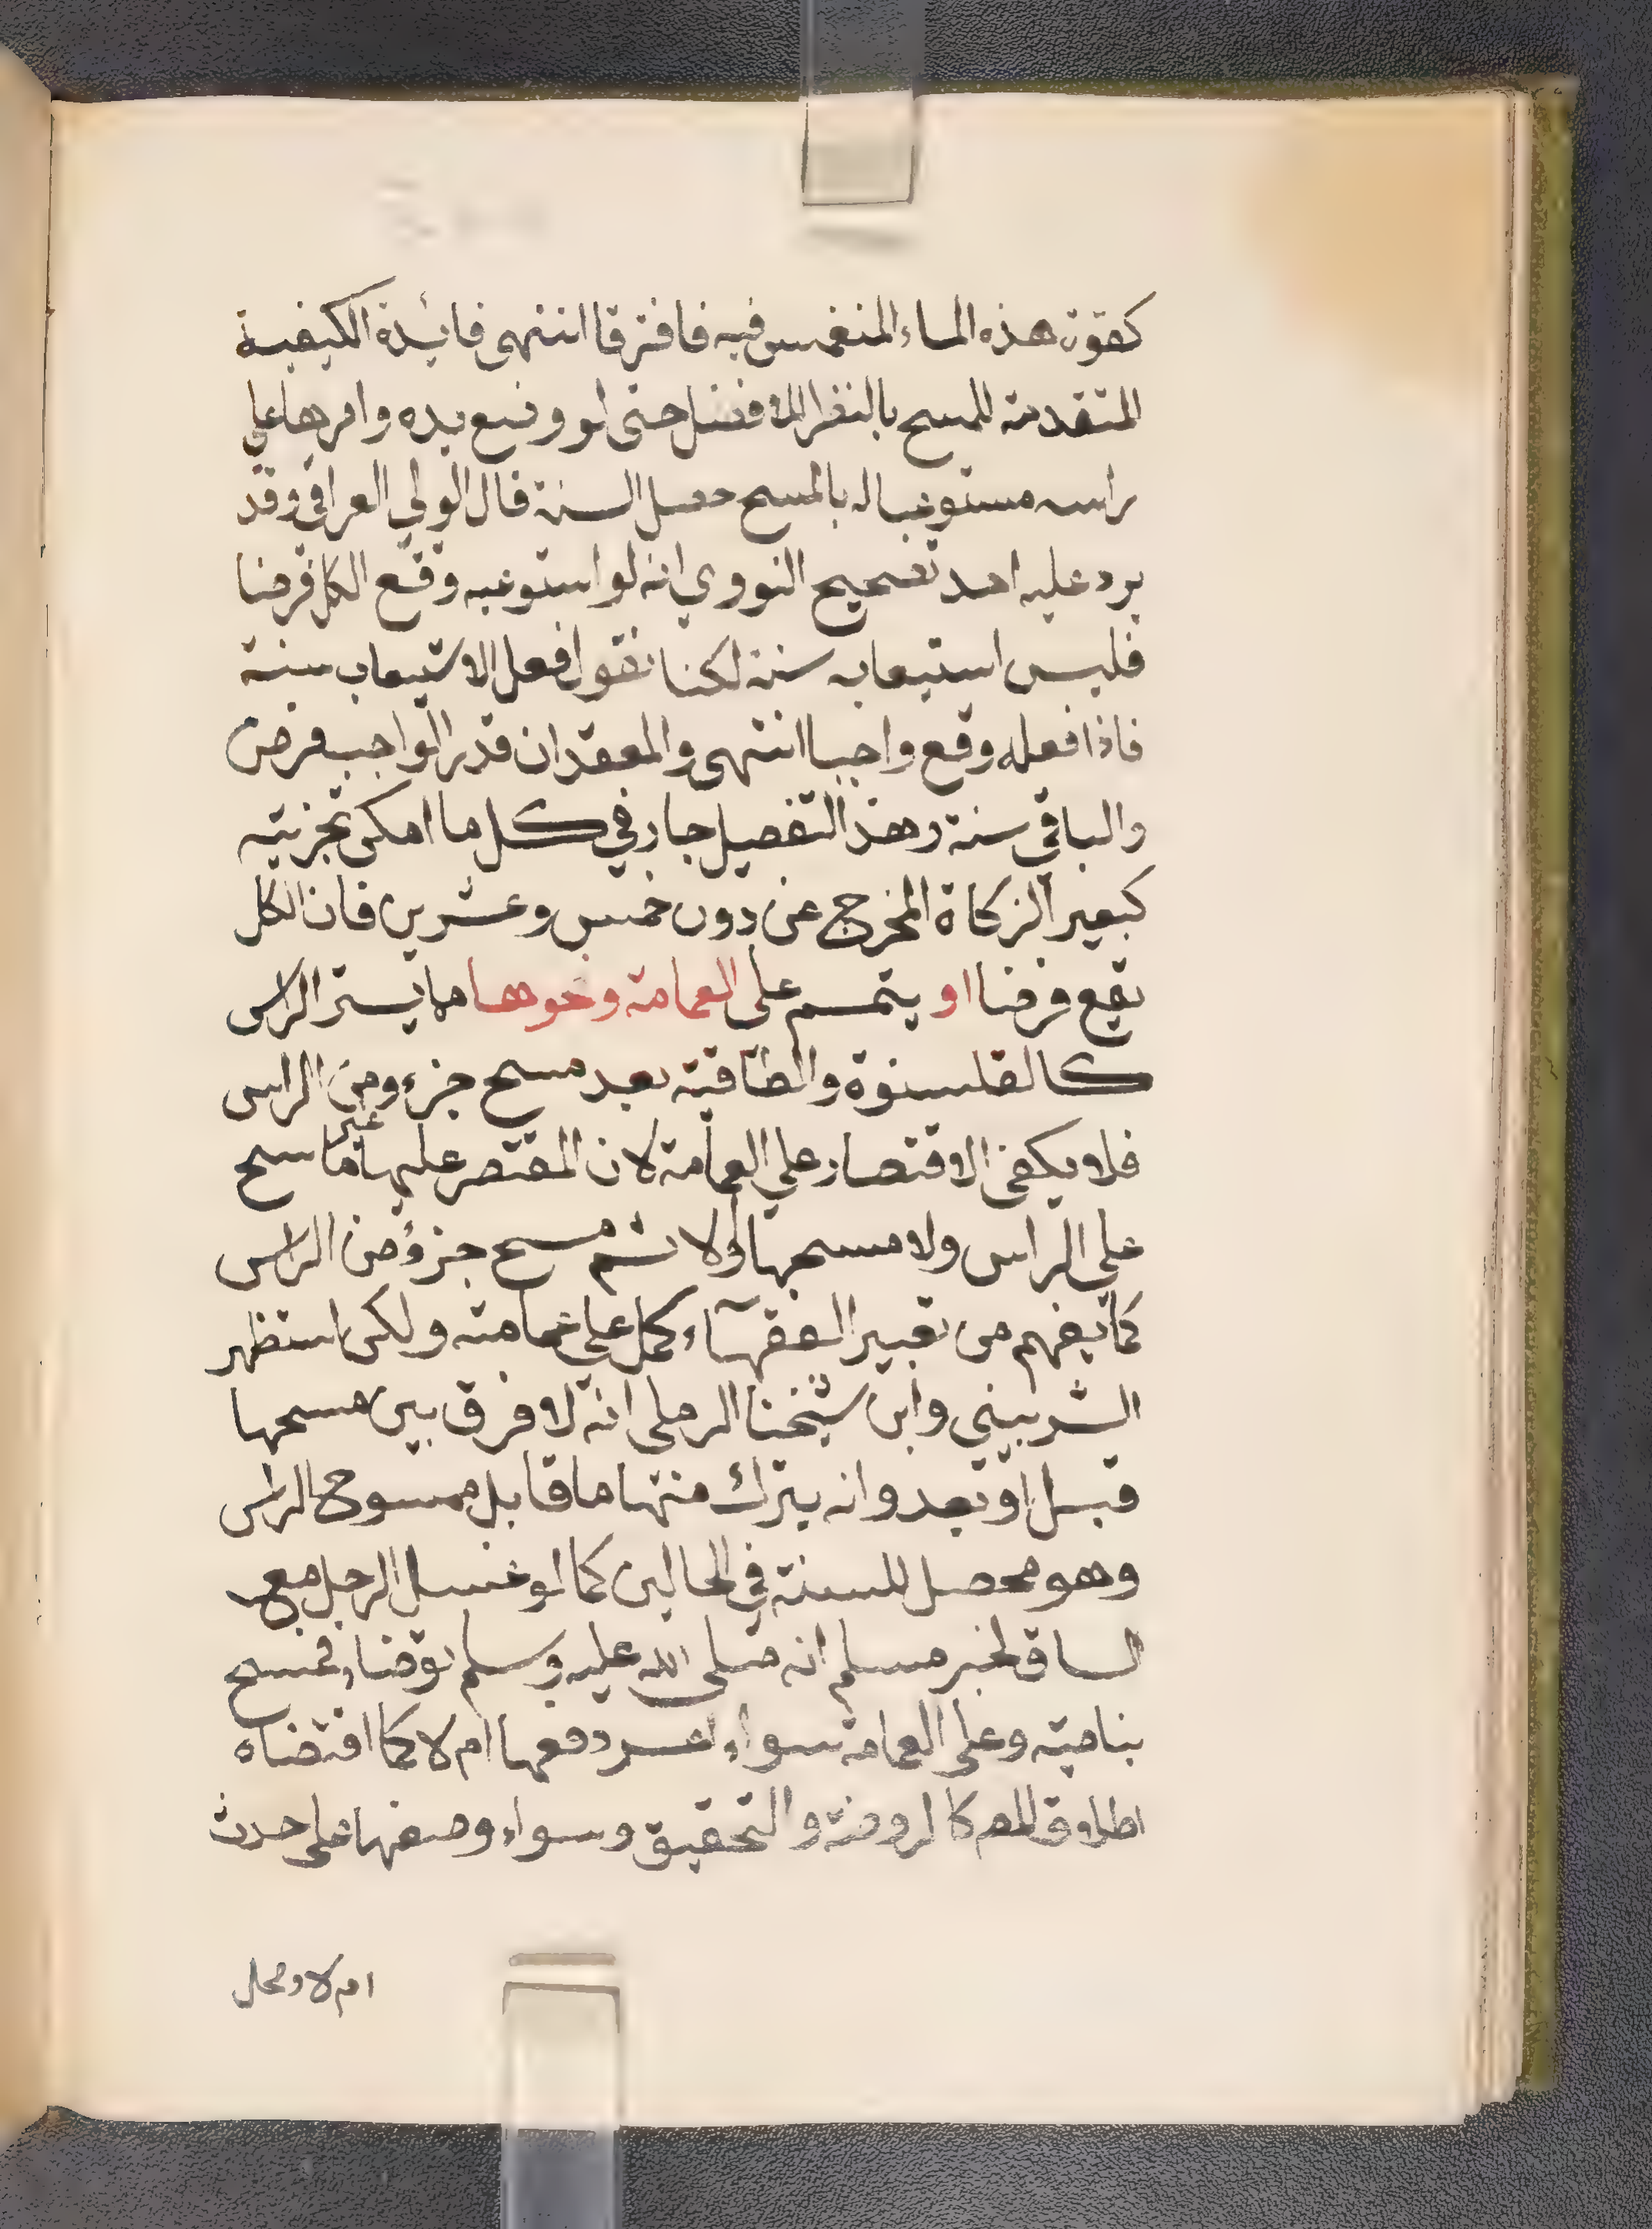 كقوة هذه الماء المنغمس فيه فافترقا انتهى فائدة الكيفية
المتقدمة للمسح بالنظر للافضل حتى لو وضع يده وامرها علي
راسه مستوعبا له بالمسح حصل السنة قال الولي العراقي وقد
يرد عليه احد تصحيح النووي انه لو استوعبه وقع الكل فرضا
فليس استيعابه سنة لكنا نقول افعل الاستيعاب سنة
فاذا فعله وقع واجبا انتهى والمعقد ان قدر الواجب فرض
والباقي سنة وهذا التفصيل جار في كل ما امكن تجزيته
كبعير الزكاة المخرج عن دون خمس وعشرين فان الكل
يقع فرضا او يتمم على العمامة ونحوها ما يستر الراس
كالقلسنوة والطاقية بعد مسح جزء ومن الراس
فلا يكفى الاقتصار علي العمامة لان المقتصر عليها غير ماسح
علي الراس ولا مسحها اولا ثم مسح جزؤ من الراس
كما يفهم من تعبير الفقهآء كمل علي عمامته ولكن استظهر
الشربيني وابن شيخنا الرملي انه لا فرق بين مسحها
قبل او بعد وانه يترك منها ما قابل ممسوح الراس
وهو محصل للسنة في الحالين كما لو غسل الرجل مع
الساق لخبر مسلم انه صلى الله عليه وسلم توضاء فمسح
بناصيته وعلى العمامة سواء اعسر دفعها ام لا كما اقتضاه
اطلاق المص كالروضة والتحقيق وسواء وضعها على حدث
ام لا ومحل